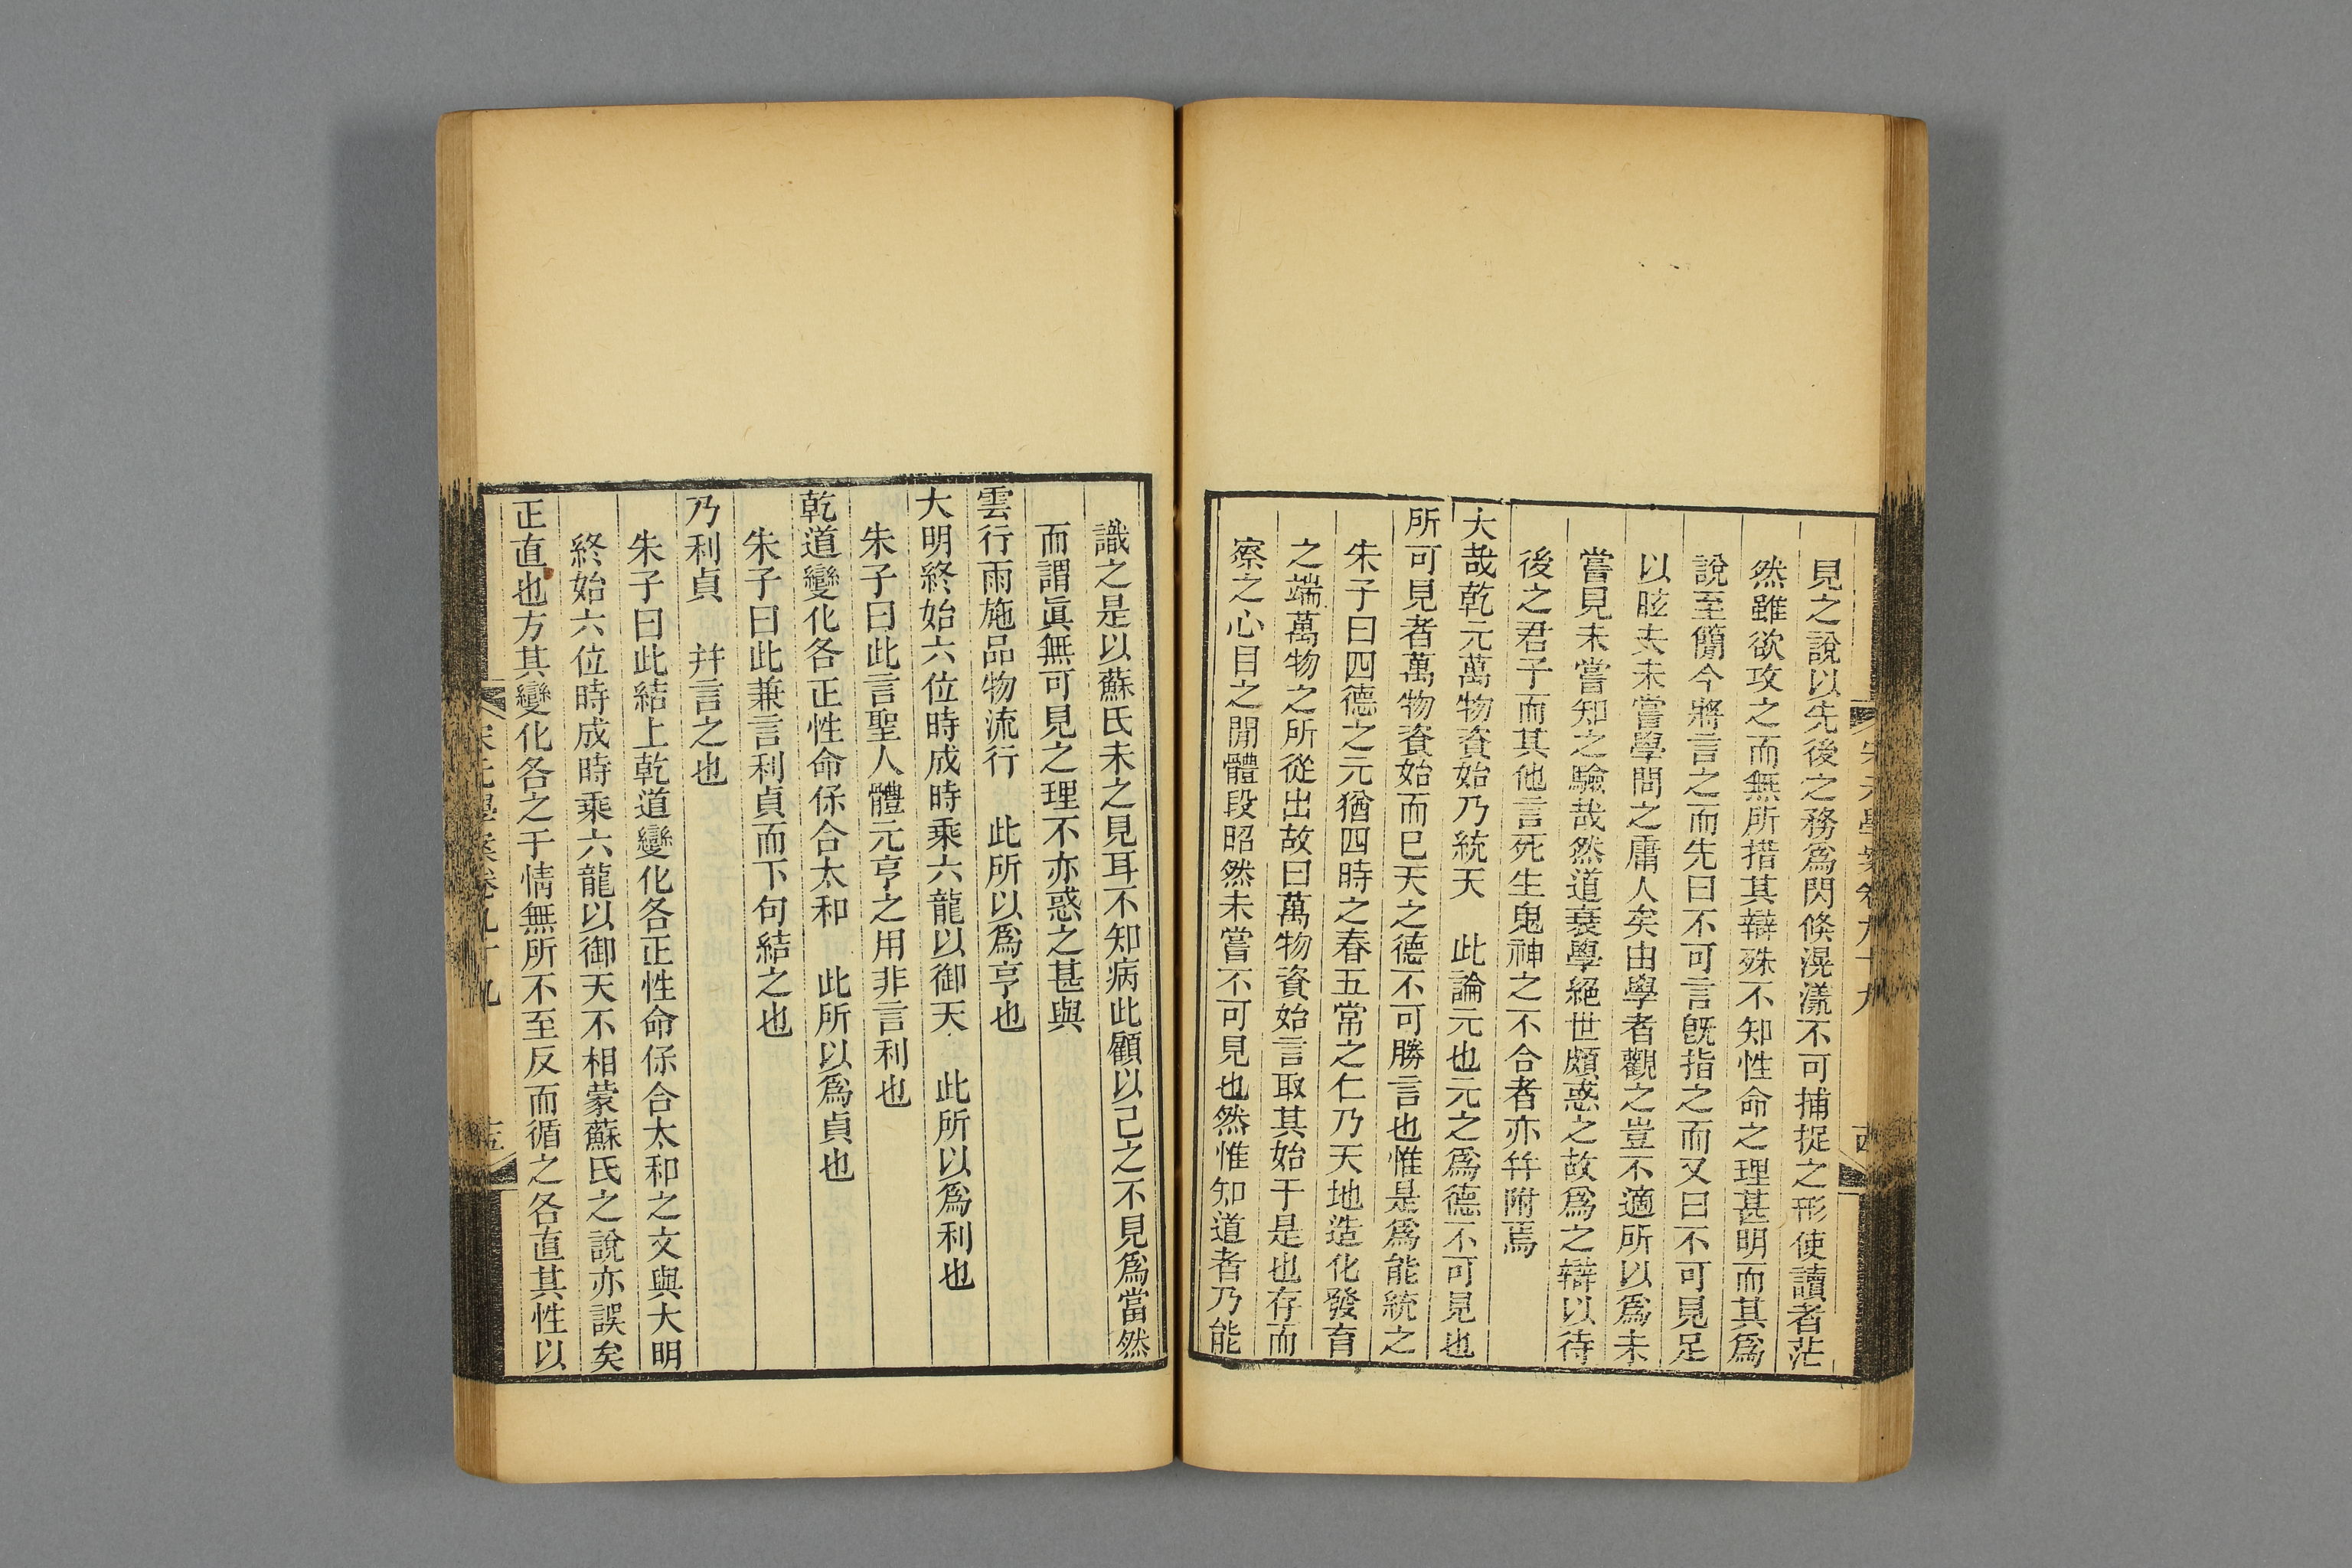 見之說以先後之務爲閃倏滉漾不可捕捉之形使讀者茫
然雖欲攻之而無所措其辯殊不知性命之理甚明而其爲
說至簡今將言之而先曰不可言旣指之而又曰不可見足
以眩夫未嘗學問之庸人矣由學者觀之豈不適所以爲未
嘗見未嘗知之驗哉然道衰學絕世頗惑之故爲之辯以待
後之君子而其他言死生鬼神之不合者亦幷附焉
大哉乾元萬物資始乃統天　此論元也元之爲德不可見也
所可見者萬物資始而已天之德不可勝言也惟是爲能統之
朱子曰四德之元猶四時之春五常之仁乃天地造化發育
之端萬物之所從出故曰萬物資始言取其始于是也存而
察之心目之閒體段昭然未嘗不可見也然惟知道者乃能
識之是以蘇氏未之見耳不知病此顧以己之不見爲當然
而謂眞無可見之理不亦惑之甚與
雲行雨施品物流行　此所以爲亨也
大明終始六位時成時乘六龍以御天　此所以爲利也
朱子曰此言聖人體元亨之用非言利也
乾道變化各正性命保合太和　此所以爲貞也
朱子曰此兼言利貞而下句結之也
乃利貞　幷言之也
朱子曰此結上乾道變化各正性命保合太和之文與大明
終始六位時成時乘六龍以御天不相蒙蘇氏之說亦誤矣
正直也方其變化各之于情無所不至反而循之各直其性以
宋元學案卷九十九